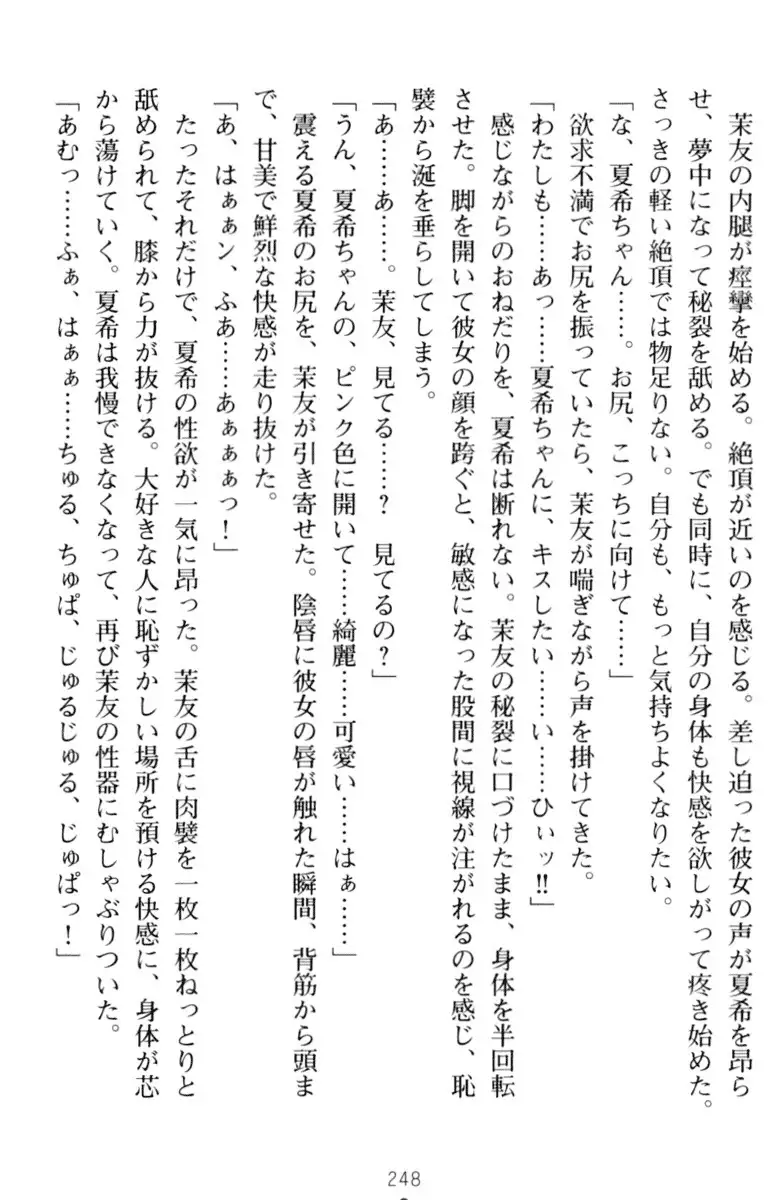 茉友の内腿が痙攣を始める。絶頂が近いのを感じる。差し迫った彼女の声が夏希を昂ら
せ、夢中になって秘裂を舐める。でも同時に、自分の身体も快感を欲しがって疼き始めた。
さっきの軽い絶頂では物足りない。自分も、もっと気持ちよくなりたい。
「な、夏希ちゃん……。お尻、こっちに向けて……」
欲求不満でお尻を振っていたら、茉友が喘ぎながら声を掛けてきた。
「わたしも……あっ……夏希ちゃんに、キスしたい……い……ひぃッ!!」
感じながらのおねだりを、夏希は断れない。茉友の秘裂に口づけたまま、身体を半回転
させた。脚を開いて彼女の顔を跨ぐと、敏感になった股間に視線が注がれるのを感じ、恥
襞から涎を垂らしてしまう。
「あ……あ……。茉友、見てる……?　見てるの?」
「うん、夏希ちゃんの、ピンク色に開いて……綺麗……可愛い……はぁ……」
震える夏希のお尻を、茉友が引き寄せた。陰唇に彼女の唇が触れた瞬間、背筋から頭ま
で、甘美で鮮烈な快感が走り抜けた。
「あ、はぁぁン、ふあ……あぁぁぁっ!」
たったそれだけで、夏希の性欲が一気に昂った。茉友の舌に肉襞を一枚一枚ねっとりと
舐められて、膝から力が抜ける。大好きな人に恥ずかしい場所を預ける快感に、身体が芯
から蕩けていく。夏希は我慢できなくなって、再び茉友の性器にむしゃぶりついた。
「あむっ……ふぁ、はぁぁ……ちゅる、ちゅぱ、じゅるじゅる、じゅぱっ!」
248